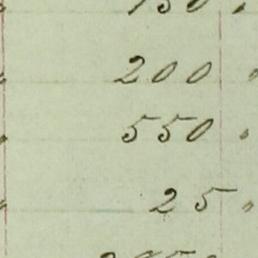 200
550
25